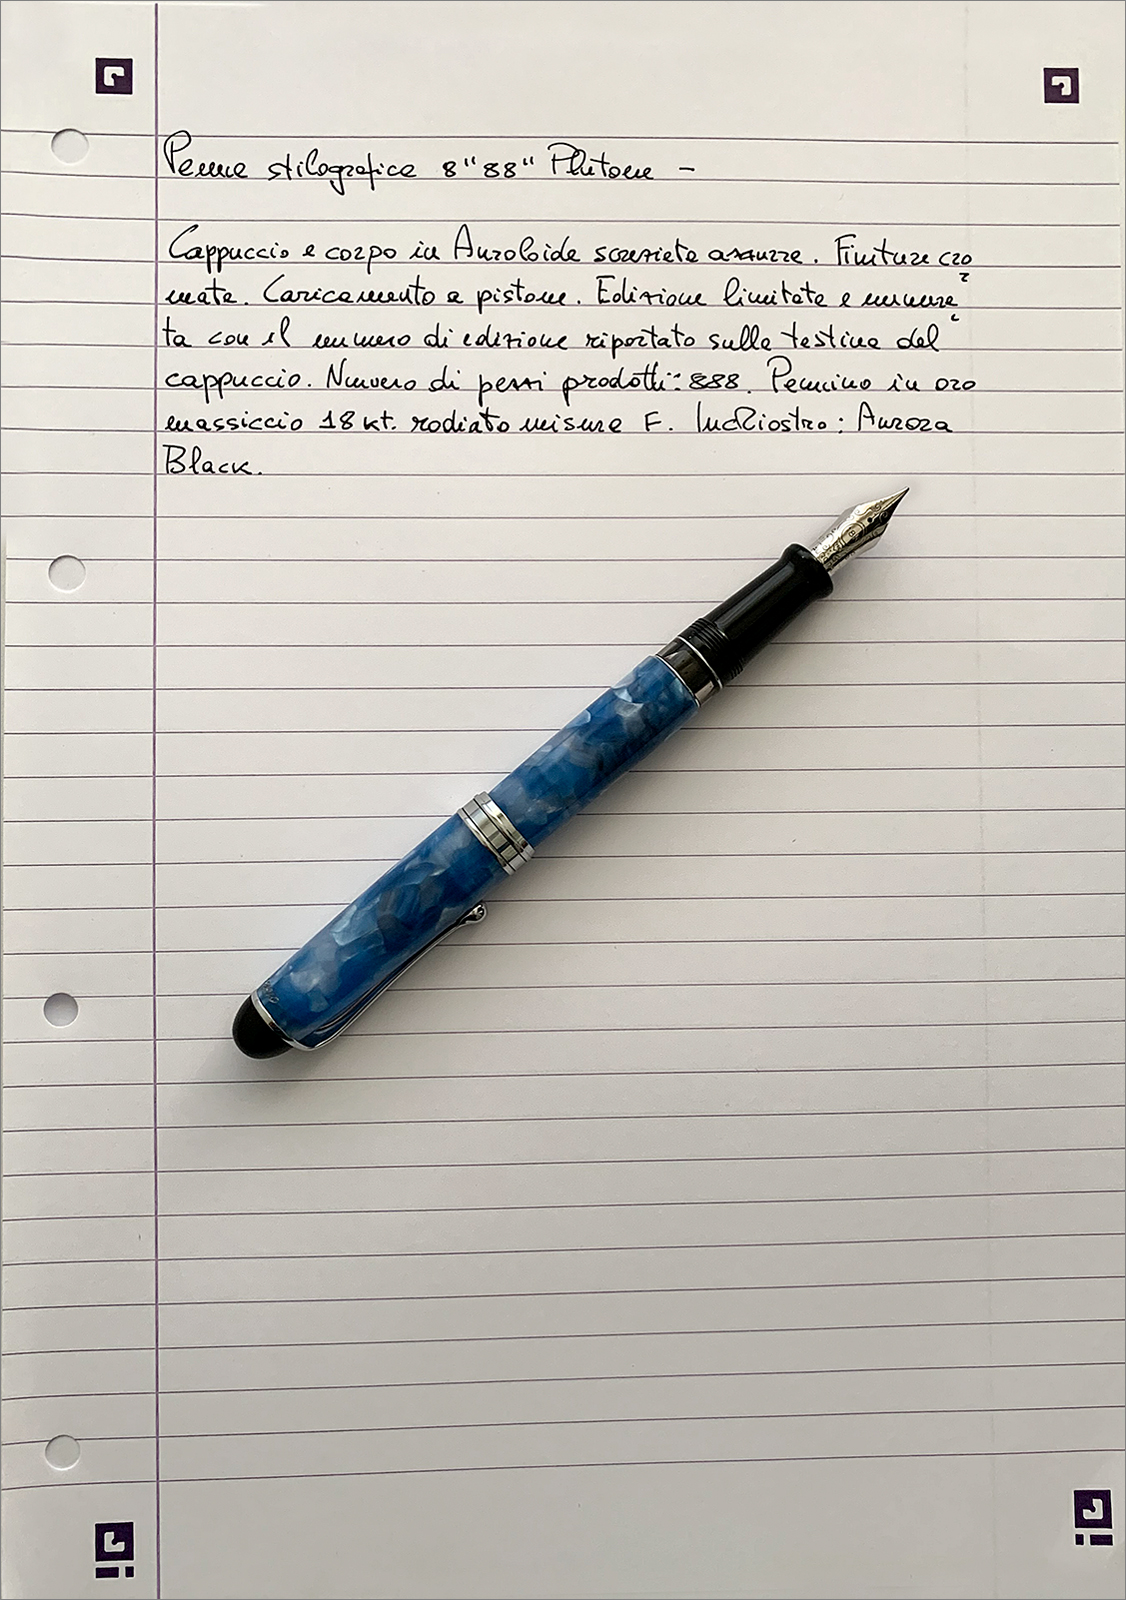 Penna stilografica 8"88" Plutone -
Cappuccio e corpo in Auroloide screziata azzurra. Finiture cro
mate. Caricamento a pistone. Edizione limitata e numera
ta con il numero di edizione riportato sulla testina del
cappuccio. Numero di pezzi prodotti: 888. Pennino in oro
massiccio 18 kt. rodiato misura F. Inchiostro: Aurora
Black.